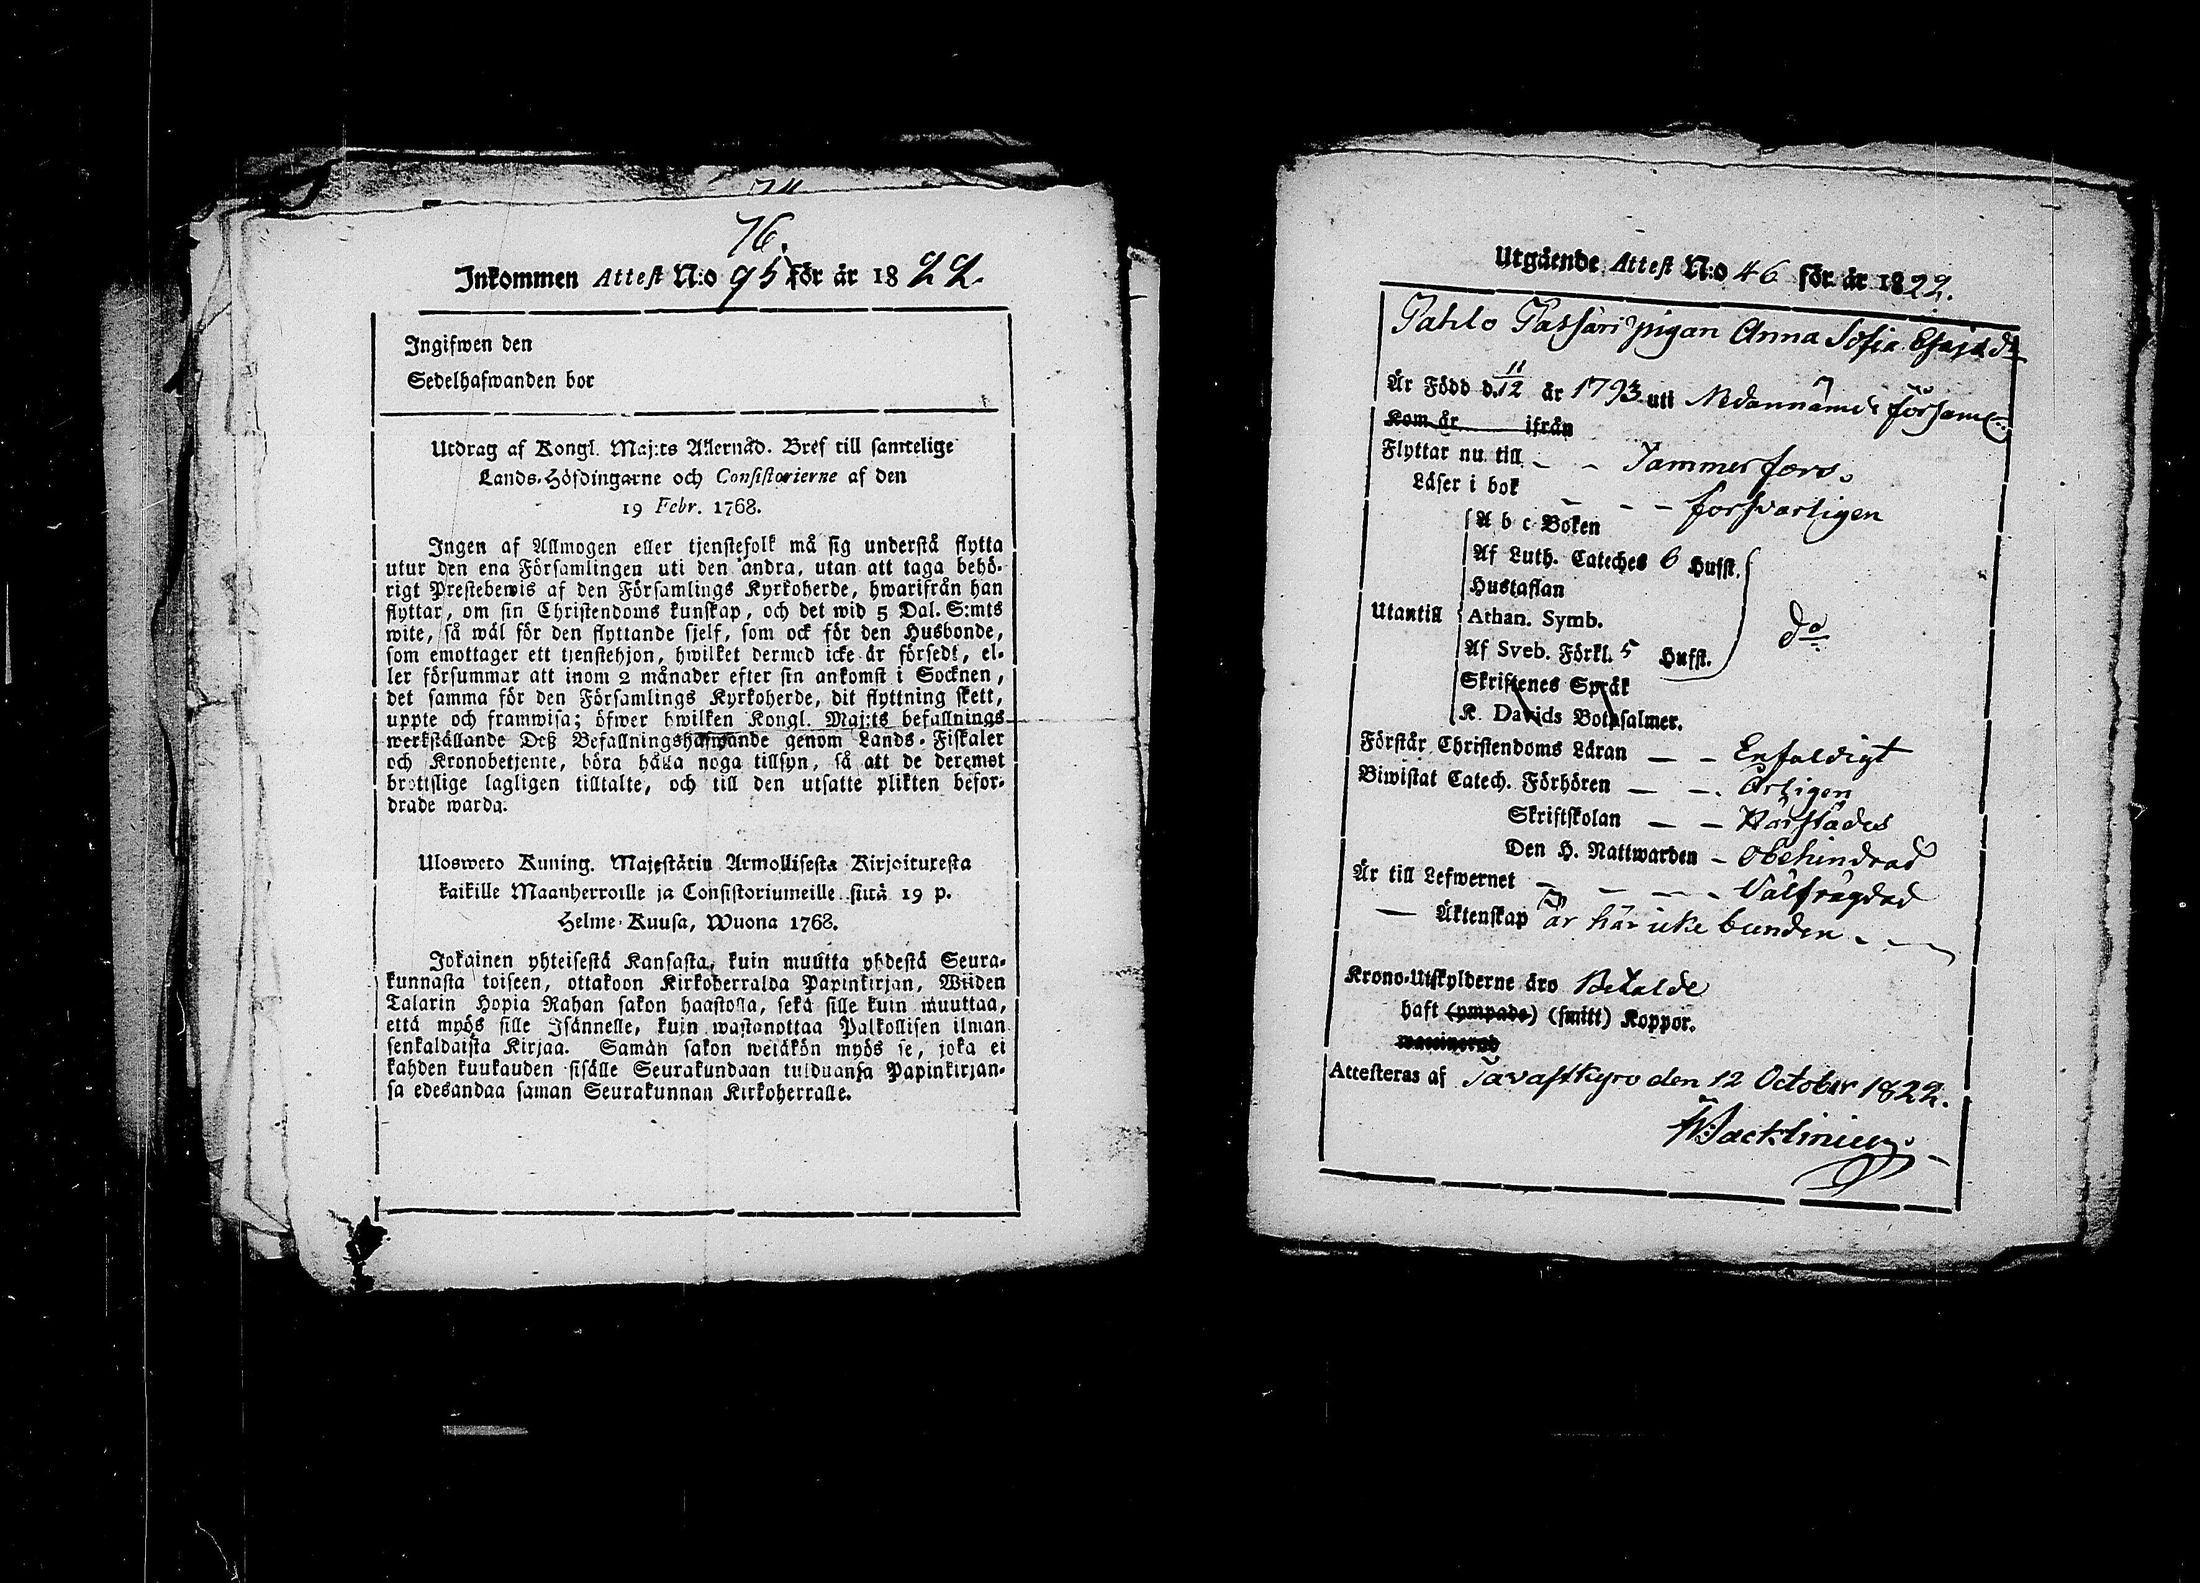 76.
Inkommen Attest N:o 95 för år 1822.
Ingifwen den
Sedelhafwanden bor
Utdrag af Kongl. Maj:ts Allernåd. Bref till samtelige
Lands-Höfdingarne och Consistorierne af den
19 Febr. 1768.
Ingen af Allmogen eller tjenstefolk må sig understå flytta
utur den ena Församlingen uti den andra, utan att taga behö-
rigt Prestebewis af den Församlings Kyrkoherde, hwarifrån han
flyttar, om sin Christendoms kunskap, och det wid 5 Dal. S:mts
wite, så wäl för den flyttande sjelf, som ock för den Husbonde,
som emottager ett tjenstehjon, hwilket dermed icke är försedt, el-
ler försummar att inom 2 månader efter sin ankomst i Socknen,
det samma för den Församlings Kyrkoherde, dit flyttning skett,
uppte och framwisa; öfwer hwilken Kongl. Maj:ts befallnings
werkställande Deß Befallningshafwande genom Lands-Fiskaler
och Kronobetjente, böra hålla noga tillsyn, så att de deremot
brottslige lagligen tilltalte, och till den utsatte plikten befor-
drade warda.
Ulosweto Kuning. Majestätin Armollisesta Kirjoituxesta
kaikille Maanherroille ja Consistoriumeille siitä 19 p.
Helme-Kuusa, Wuona 1768.
Jokainen yhteisestä Kansasta, kuin muutta yhdestä Seura-
kunnasta toiseen, ottakoon Kirkoherralda Papinkirjan, Wiiden
Talarin Hopia Rahan sakon haastolla, sekä sille kuin muuttaa,
että myös sille Isännelle, kuin wastanottaa Palkollisen ilman
senkaldaista Kirjaa. Samän sakon wetäkön myös se, joka ei
kahden kuukauden sisälle Seurakundaan tulduansa Papinkirjan-
sa edesandaa saman Seurakunnan Kirkoherralle.
Utgående Attest N:o 46 för år 1822.
Pahlo Passari pigan Anna Sofia Esajæ dr
Är Född d. 11/12 år 1793 uti Nedannämde församl.
Kom år ifrån
Flyttar nu till Tammerfors.
Läser i bok forsvarligen
A b c Boken
Af Luth. Cateches 6 Hufst.
Hustaflan
Utantill Athan. Symb. do
Af Sveb. Förkl. 5 Hufst.
Skriftenes Språk
K. Davids Botpsalmer.
Förstår Christendoms Läran Enfaldigt
Biwistat Catech. Förhören Årligen
Skriftskolan Härstädes
Den H. Nattwarden Obehindrad
Är till Lefwernet Välfrägdad
Äktenskap är här icke bunden
Krono-Utskylderne äro Betalde
haft (ympade) (smitt) Koppor.
waccinerad
Attesteras af Tavastkyro den 12 October 1822.